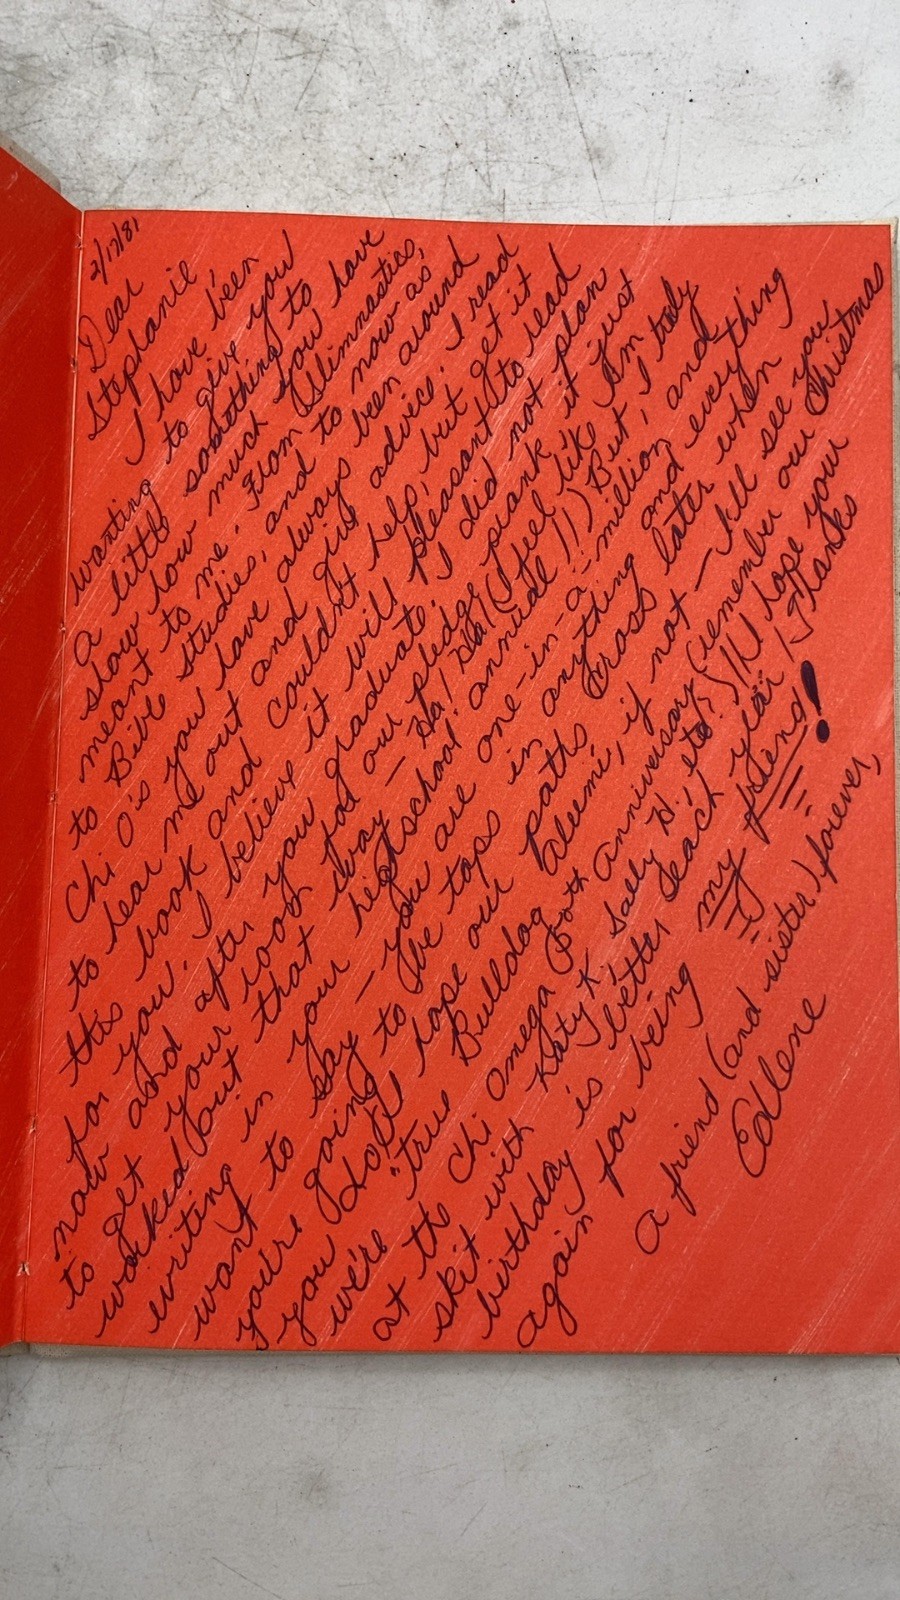 Dear
Stephanie,
I have been
wanting to give you
a little something to
show how much you have
meant to me. From Slimnastics,
to Bible studies, and to now as
Chi O's you have always been around
to hear me out and give advice. I read
this book and couldn't help, but get it
for you. I believe it will pleasant to read
now and after you graduate. I did not plan
to get your room for our pledge prank it just
worked out that way — Ha! Ha! (I feel like I'm
writing in your high school annual!!) But, I truly
want to say — you are one-in-a-million, and
you're going to be tops in anything and everything
you do. I hope our paths cross later when
we're "true Bulldog" Alumni, if not — I'll see you
at the Chi Omega 50th Anniversary (remember our Christmas
skit with Katy K, Sally D., etc.)! I hope your
birthday is better each year! Thanks
again for being my friend!
a friend (and sister) forever,
Edlene